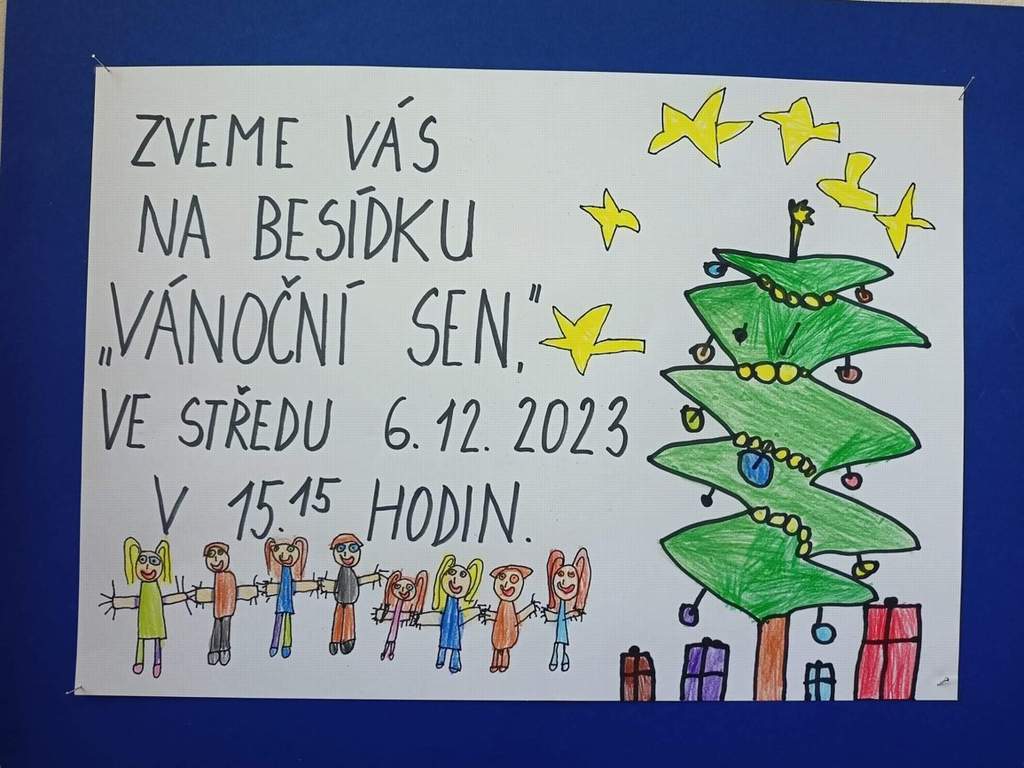 ZVEME VÁS
NA BESÍDKU
„VÁNOČNÍ SEN,"
VE STŘEDU 6.12.2023
V 15.15 HODIN.